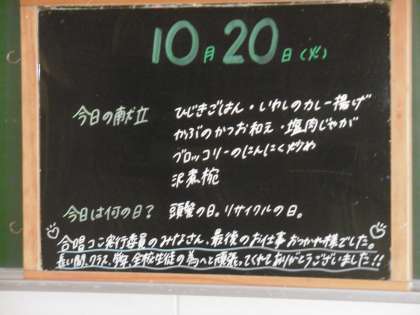 10月20日(火)
今日の献立 ひじきごはん・いわしのカレー揚げ
かぶのかつお和え・塩肉じゃが
ブロッコリーのにんにく炒め
沢煮椀
今日は何の日? 頭髪の日。リサイクルの日。
合唱コン実行委員のみなさん、最後のお仕事おつかれ様でした。
長い間、クラス、学年、全校生徒の為へと頑張ってくれてありがとうございました!!